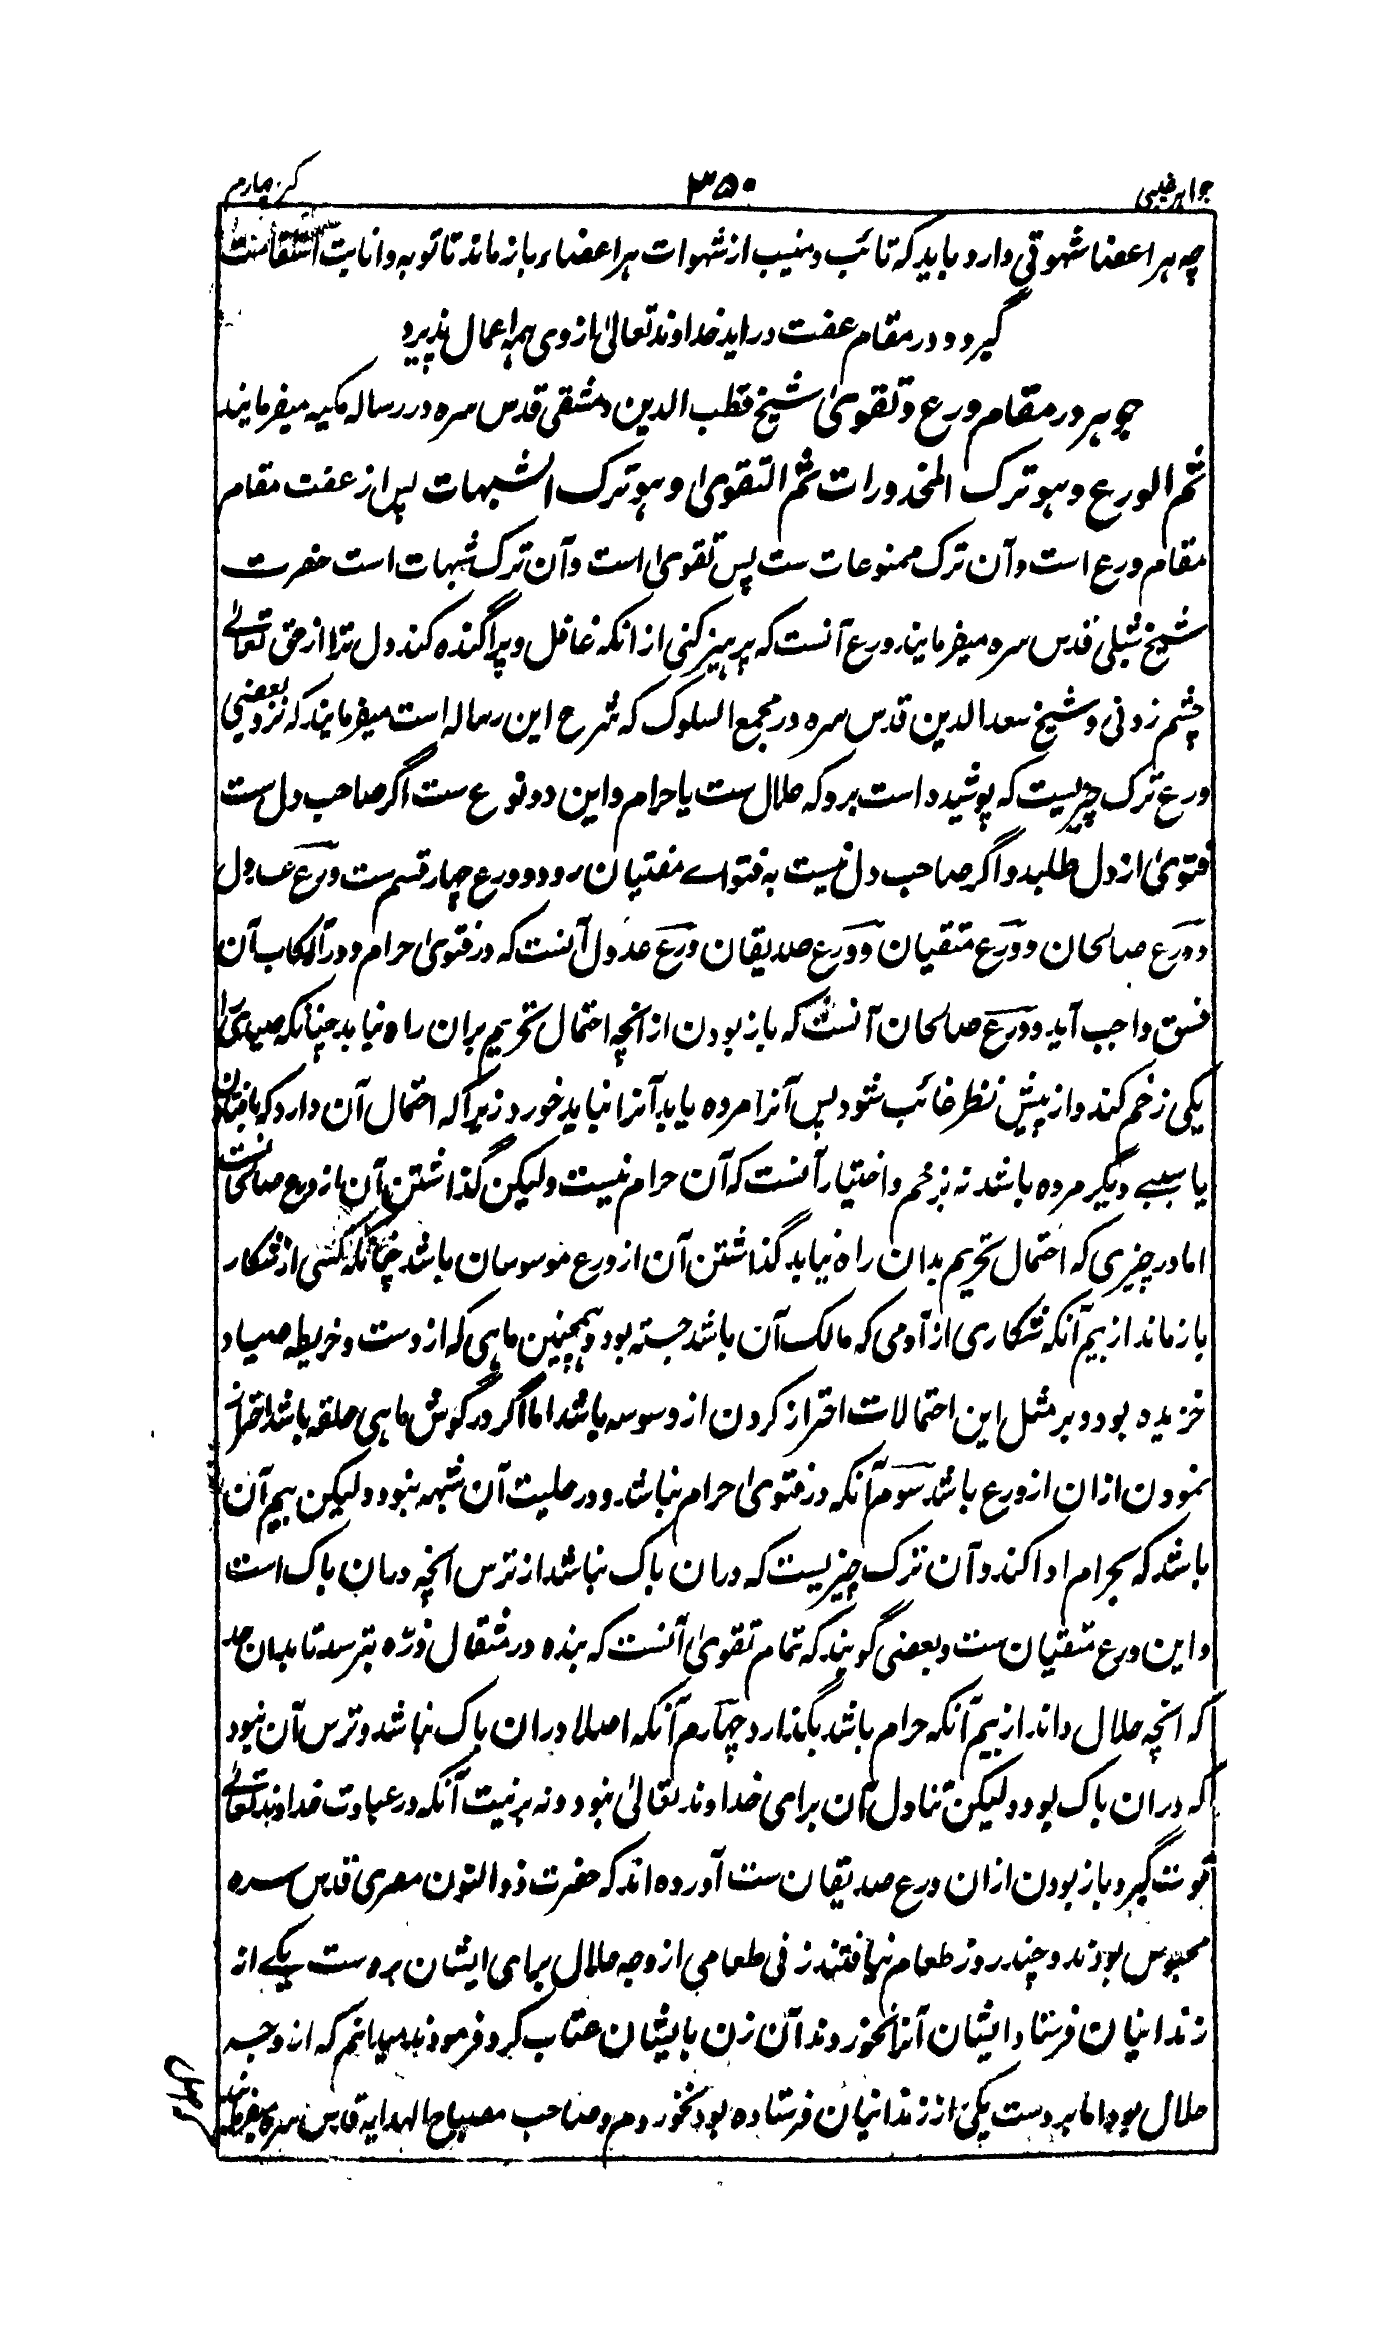 جواهر غیبی ۳۵۰ کنز چهارم
چه هر اعضا شهوتی دارد باید که تائب و منیب از شهوات هر اعضاء باز ماند تا توبه و انابت استقامت
گیرد و در مقام عفت در آید خداوند تعالیٰ از وی همه اعمال پذیرد
جوهر در مقام ورع و تقویٰ شیخ قطب الدین دمشقی قدس سره در رساله مکیه میفرمایند
ثم الورع وهو ترک المخدورات ثم التقویٰ وهو ترک الشبهات پس از عفت مقام
مقام ورع است و آن ترک ممنوعات ست پس تقویٰ است و آن ترک شبهات است حضرت
شیخ شبلی قدس سره میفرمایند ورع آنست که پرهیز کنی از آنکه غافل و پراگنده کند دل ترا از حق تعالےٰ
چشم زدنی و شیخ سعد الدین قدس سره در مجمع السلوک که شرح این رساله است میفرمایند که نزد بعضی
ورع ترک چیزیست که پوشیده است برو که حلال ست یا حرام و این دو نوع ست اگر صاحب دل ست
فتویٰ از دل طلبد و اگر صاحب دل نیست به فتواے مفتیان رود و ورع چهار قسم ست ورع عدول
و ورع صالحان و ورع متقیان و ورع صدیقان ورع عدول آنست که در فتویٰ حرام و در ارتکاب آن
فسق واجب آید و ورع صالحان آنست که باز بودن از آنچه احتمال تحریم بران راه نیابد چنانکه صیدی را
یکی زخم کند و از پیش نظر غائب شود پس آنرا مرده یابد آنرا نباید خورد زیرا که احتمال آن دارد که بافتادن
یا بسببے دیگر مرده باشد نه بزخم و اختیار آنست که آن حرام نیست ولیکن گذاشتن آن از ورع صالحانست
اما در چیزی که احتمال تحریم بدان راه نیابد گذاشتن آن از ورع موسوسان باشد چنانکه کسی از شکار
باز ماند از بیم آنکه شکاری از آدمی که مالک آن باشد جسته بود و همچنین ماهی که از دست و خریطه صیاد
خزیده بود و بر مثل این احتمالات احتراز کردن از وسوسه باشد اما اگر در گوش ماهی حلقه باشد احتراز
نمودن ازان از ورع باشد سوم آنکه در فتویٰ حرام نباشد و در حلیت آن شبهه نبود ولیکن بیم آن
باشد که بحرام ادا کند و آن ترک چیزیست که دران باک نباشد از ترس انچه دران باک است
و این ورع متقیان ست و بعضی گویند که تمام تقویٰ آنست که بنده در مثقال ذره بترسد تا بدان حد
که انچه حلال داند از بیم آنکه حرام باشد بگذارد چهارم آنکه اصلا دران باک نباشد و ترس آن نبود
که دران باک بود ولیکن تناول آن برای خداوند تعالیٰ نبود و نه بر نیت آنکه در عبادت خداوند تعالےٰ
قوت گیرد باز بودن ازان ورع صدیقان ست آورده اند که حضرت ذوالنون مصری قدس سره
محبوس بودند و چند روز طعام نیافتند زنی طعامی از وجه حلال برای ایشان بدست یکے از
زندانیان فرستاد ایشان آنرا نخوردند آن زن بایشان عتاب کرد فرمودند میدانم که از وجه
حلال بود اما بر دست یکی از زندانیان فرستاده بود نخوردم و صاحب مصباح الهدایه قدس سره میفرمایند